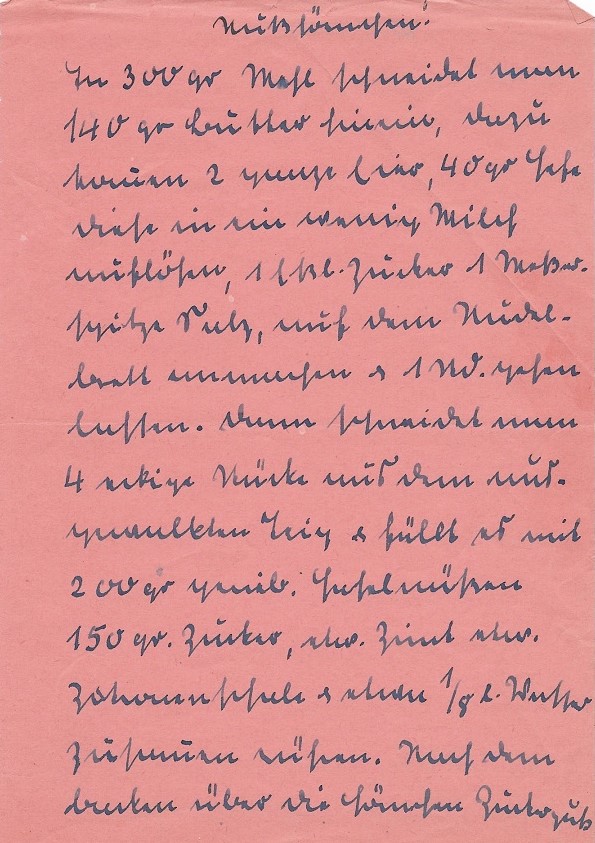 Nußhörnchen!
In 300 gr Mehl schneidet man
140 gr Butter hinein, dazu
kommen 2 ganze Eier, 40 gr Hefe
diese in ein wenig Milch
auflösen, 1 Eßl. Zucker 1 Meßer-
spitze Salz, auf dem Nudel-
brett anmachen & 1 Std. gehen
lassen. Dann schneidet man
4 eckige Stücke aus dem aus-
gewalkten Teig & füllt es mit
200 gr gerieb. Haselnüßen
150 gr. Zucker, etw. Zimt etw.
Zitronenschale & etwa 1/8 l. Wasser
zusammen rühren. Nach dem
backen über die Hörnchen Zuckerguß